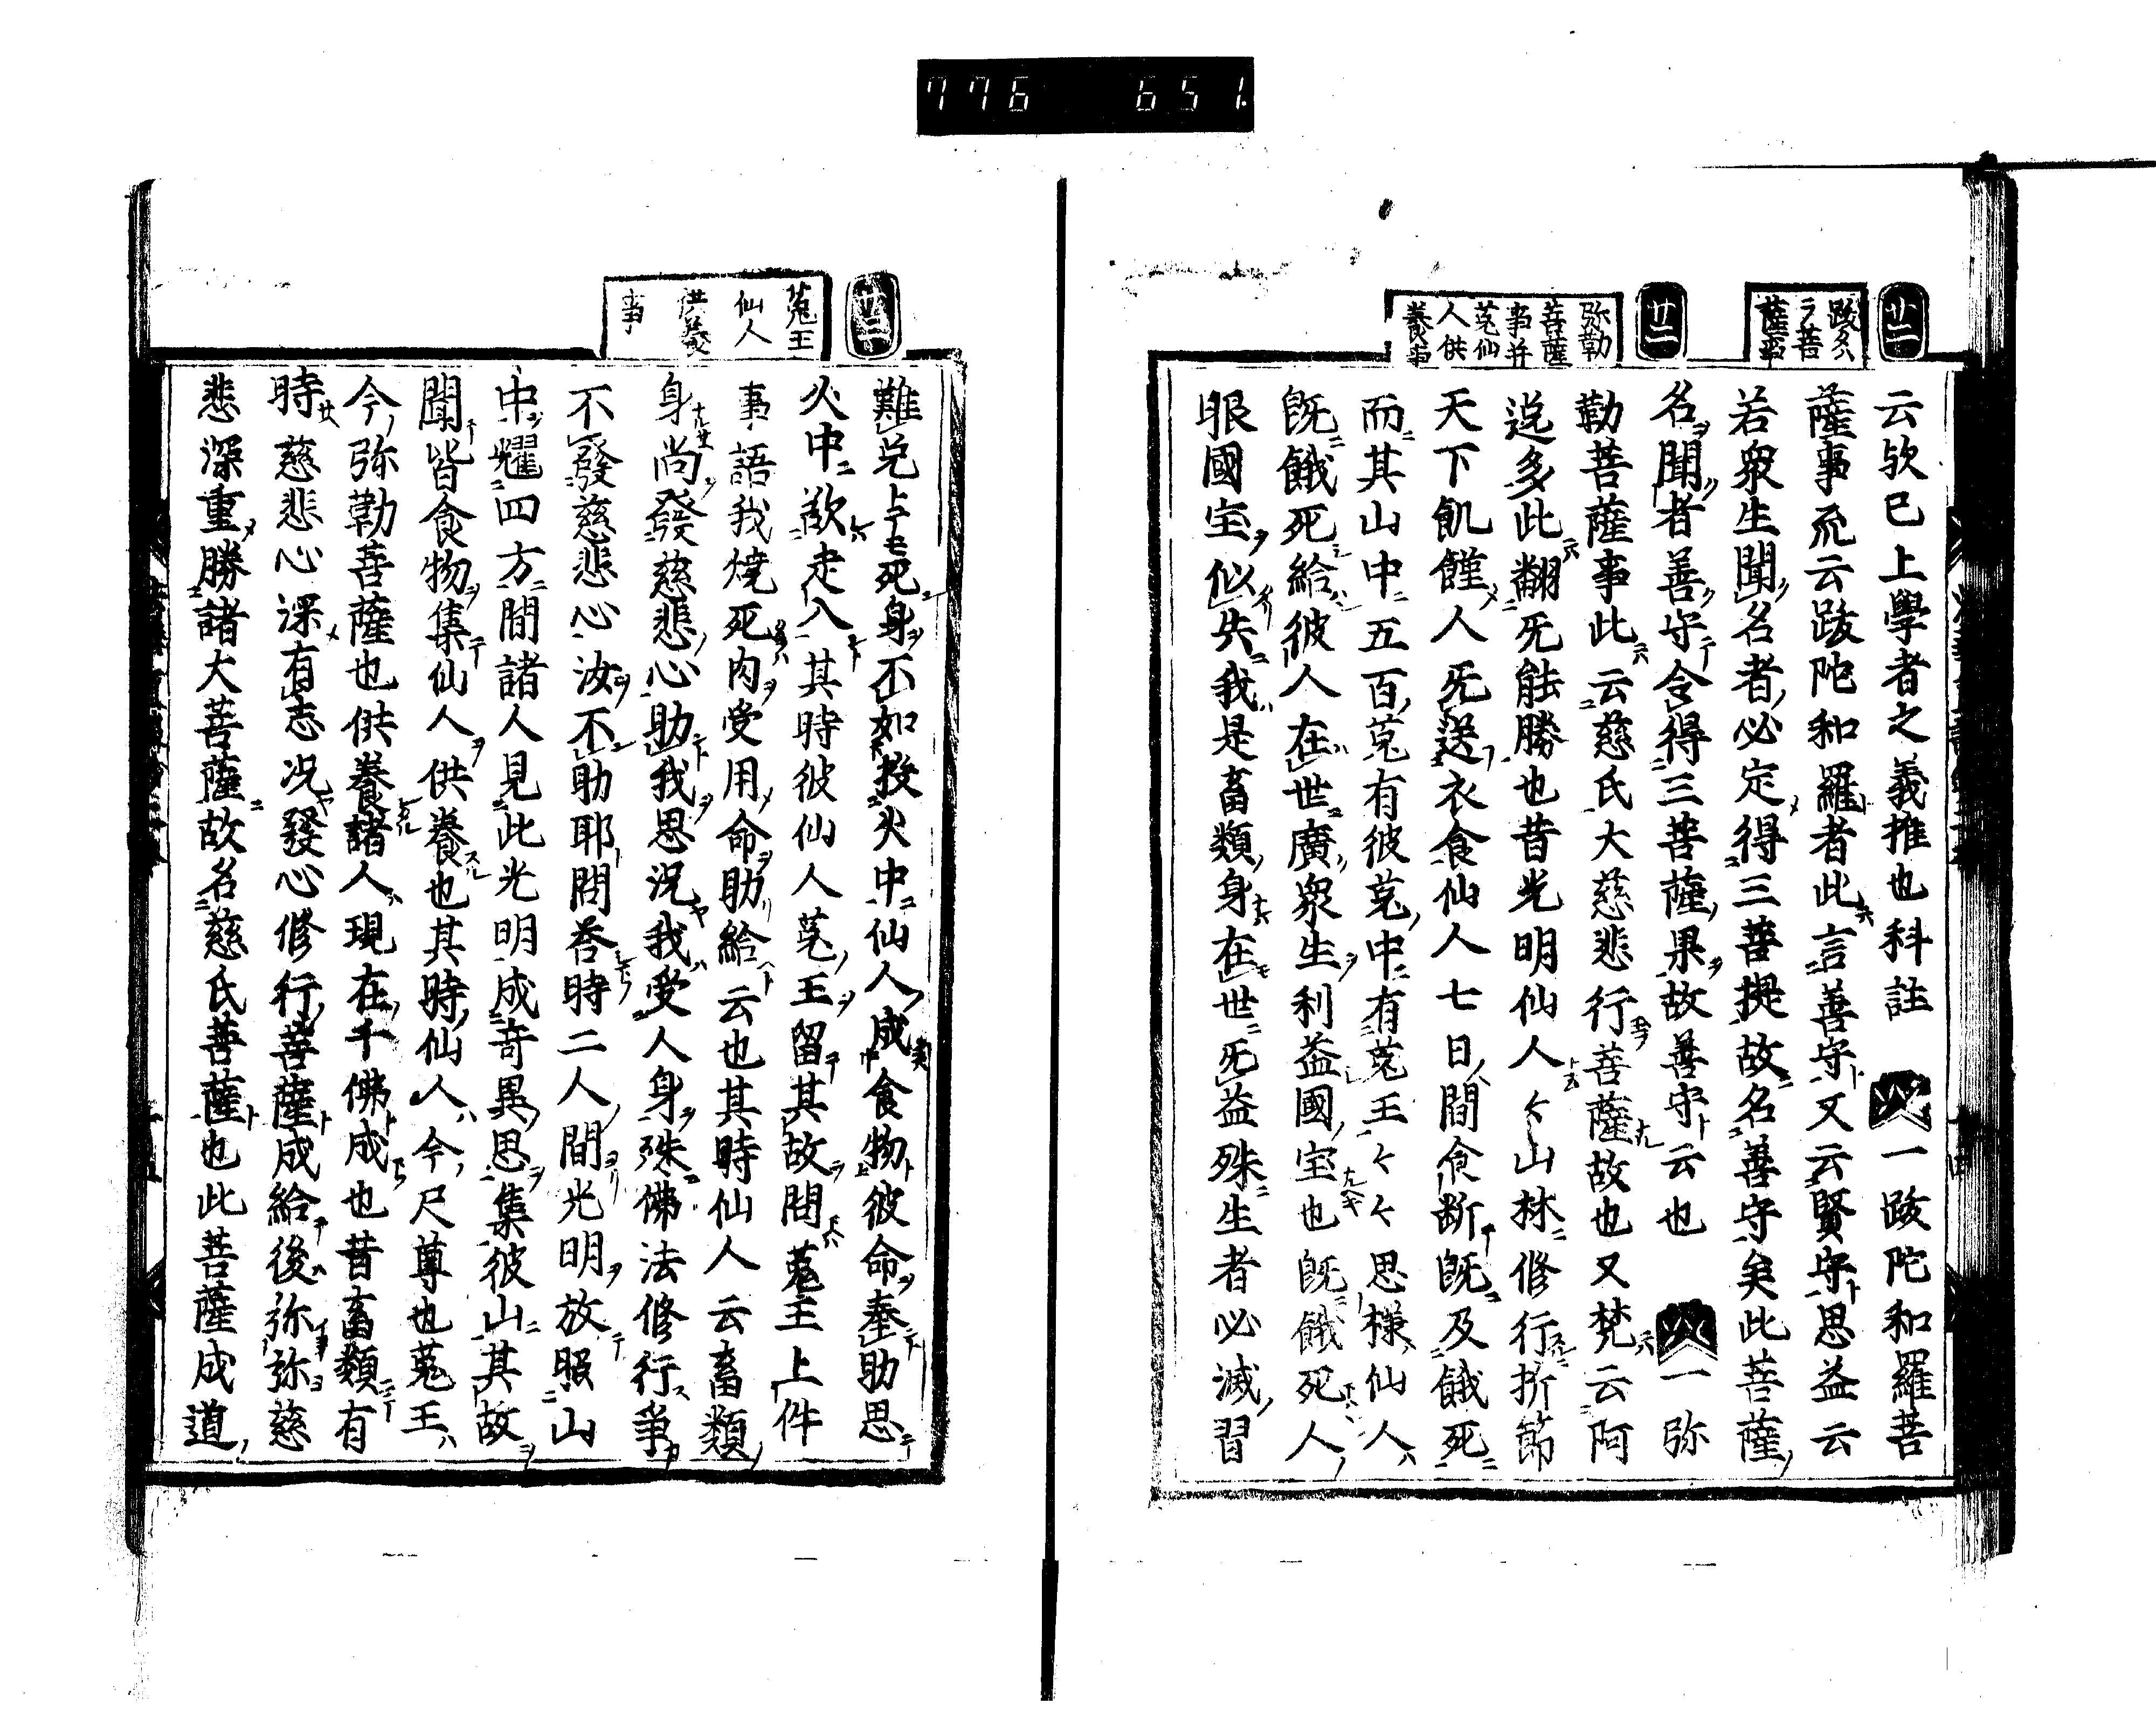 776 651.
廿一
跋多
ラ菩
薩事
廿二
弥勒
菩薩
事并
莵仙
人供
養事
云欤已上學者之義推也科註 一跋陀和羅菩
薩事疏云跋陀和羅者此言善守又云賢守思益云
若衆生聞名者必定得三菩提故名善守矣此菩薩
名聞者善守令得三菩薩果故善守云也 一弥
勒菩薩事此云慈氏大慈悲行菩薩故也又梵云阿
逸多此翻无能勝也昔光明仙人々山林修行折節
天下飢饉人死送衣食仙人七日間食断既及餓死
而其山中五百莵有彼莵中有莵王々々思様仙人
既餓死給彼人在世廣衆生利益國宝也既餓死人
眼國宝似失我是畜類身在世无益殊生者必滅習
廿三
莵王
仙人
供養
事
難免上死身不如投火中仙人成食物彼命奉助思
火中欲走入其時彼仙人莵王留其故問莵王上件
事語我燒死肉受用命助給云也其時仙人云畜類
身尚發慈悲心助我思況我受人身殊佛法修行爭
不發慈悲心汝不助耶問荅時二人間光明放照山
中耀四方間諸人見此光明成竒異思集彼山其故
聞皆食物集仙人供養也其時仙人今尺尊也莵王
今弥勒菩薩也供養諸人現在千佛成也昔畜類有
時慈悲心深有志况發心修行菩薩成給後弥弥慈
悲深重勝諸大菩薩故名慈氏菩薩也此菩薩成道